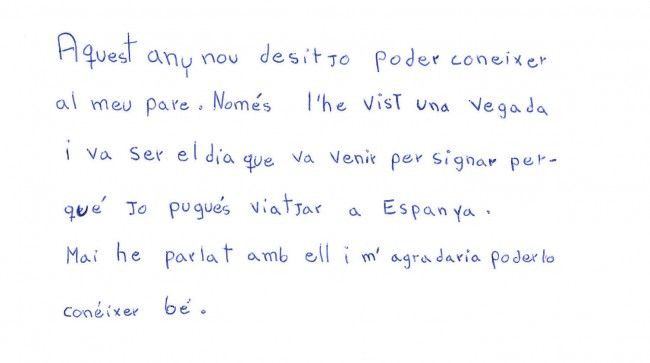 Aquest any nou desitjo poder coneixer
al meu pare. Només l'he vist una vegada
i va ser el dia que va venir per signar per-
qué jo pugués viatjar a Espanya.
Mai he parlat amb ell i m'agradaria poderlo
conéixer bé.